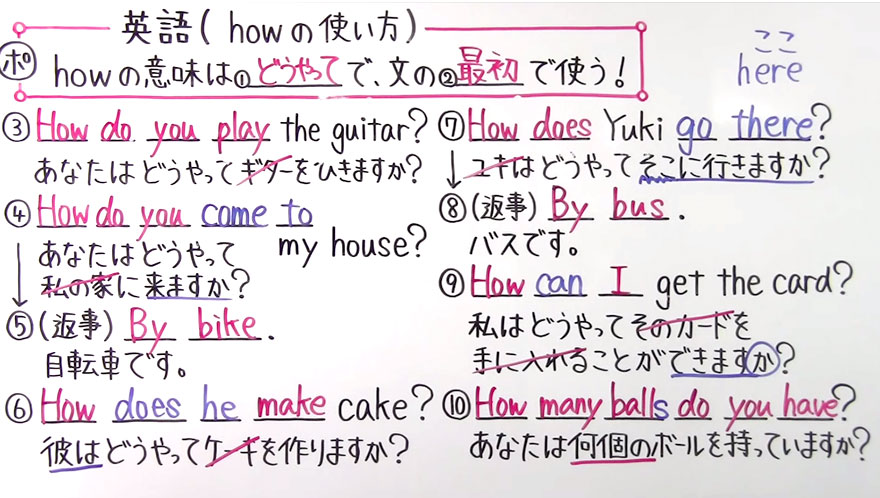 英語(howの使い方)
ポ howの意味は①どうやってで、文の②最初で使う!
ここ
here
③ How do you play the guitar?
あなたはどうやってギターをひきますか?
④ How do you come to
my house?
あなたはどうやって
私の家に来ますか?
⑤(返事) By bike.
自転車です。
⑥ How does he make cake?
彼はどうやってケーキを作りますか?
⑦ How does Yuki go there?
ユキはどうやってそこに行きますか?
⑧(返事) By bus.
バスです。
⑨ How can I get the card?
私はどうやってそのカードを
手に入れることができますか?
⑩ How many balls do you have?
あなたは何個のボールを持っていますか?